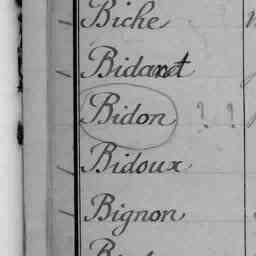 Biche
Bidanet
Bidon ? ?
Bidoux
Bignon